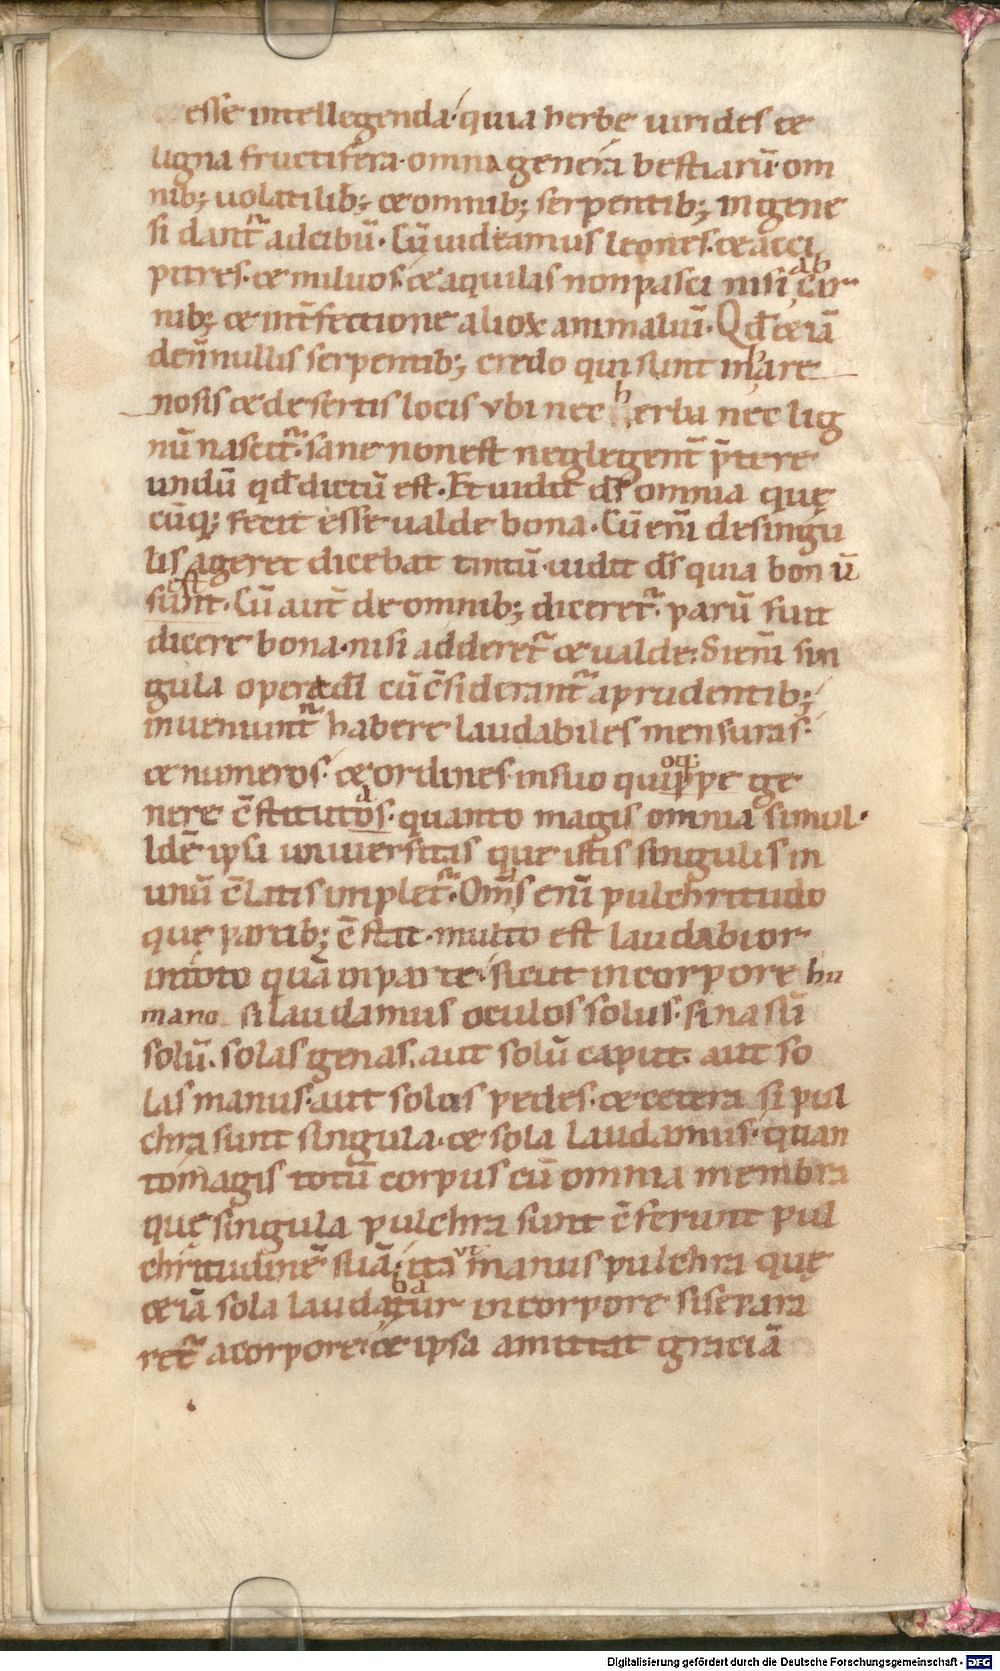 esse intellegenda· quia herbe uirides &
ligna fructifera· omnia genera bestiarū· om
nib; uolatilib; & omnib; serpentib; ingene
si dant̃ adcibū. Cū uideamus leones· & acci
pitres· & miluos· & aquilas nonpasci nisi car
nib; & int̃fectione alioꝝ animaliū. Qđ & iā
denñullis serpentib; credo qui sunt in hare
nosis & desertis locis ubi nec herba nec lig
nū nascit̃· sane nonest neglegent̃ p̃tere
undū qđ dictū est. Et uidit dš omnia quę
cūq; fecit esse ualde bona. Cū eni̅ desingu
lis ageret dicebat tantū· uidit dš quia bonū
est
sunt. Cū aut̃ de omnib; diceret̃· parū fuit
dicere bona· nisi adderet̃ & ualde. Si eni̅ sin
gula opera dı̄ cū c̄siderant̃ aprudentib;
inueniunt̃ habere laudabiles mensuras·
& numeros· & ordines· insuo quippe ge
nere c̄stitutos· quanto magis omnia simul·
idē ipsi uniuersitas que istis singulis in
unū c̄latis implet̃. Om̄s eni̅ pulchritudo
quę partib; c̄stat· multo est laudabior
intoto quā inparte· sicut incorpore hu
mano si laudamus oculos solus· si nasū
solū. solas genas. aut solū caput. aut so
las manus· aut solos pedes· & cetera si pul
chra sunt singula· & sola laudamus· quan
tomagis totū corpus cū omnia membra
quę singula pulchra sunt c̄ferunt pul
chritudinē suā· ita ut manus pulchra quę
& iā sola laudabatur incorpore si separa
ret̃ acorpore· & ipsa amittat graciā
Digitalisierung gefördert durch die Deutsche Forschungsgemeinschaft - DFG